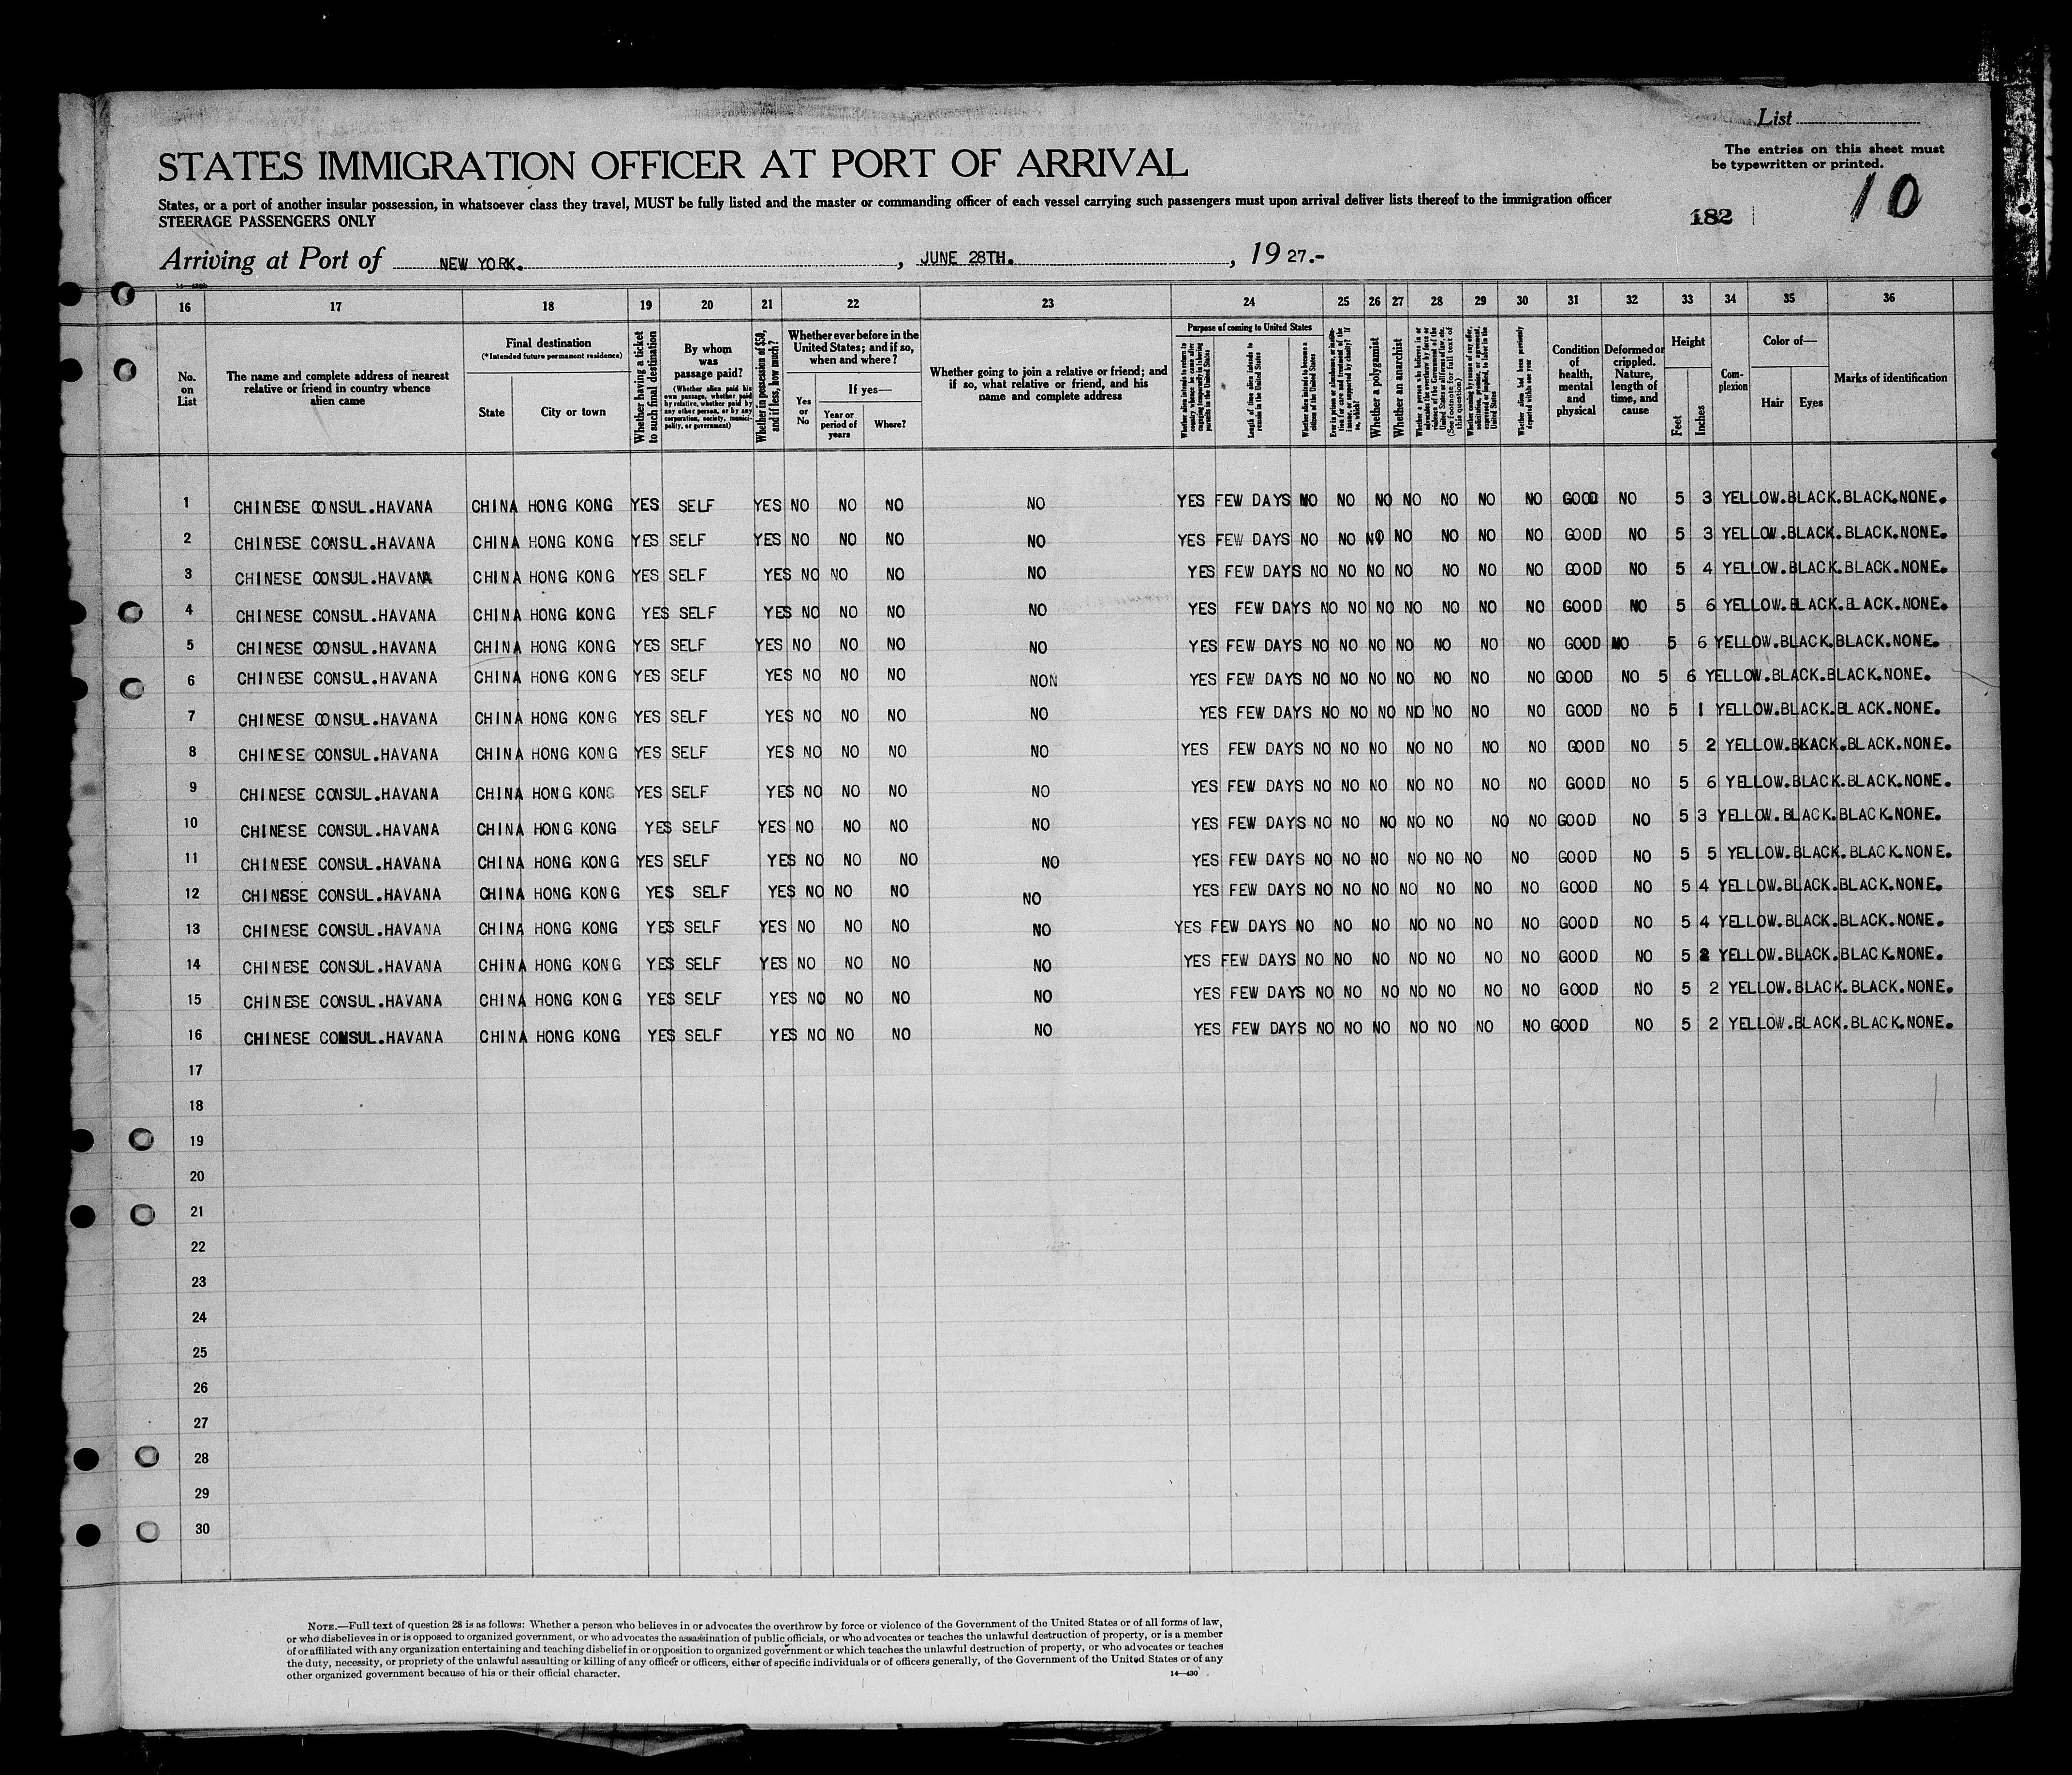 List
The entries on this sheet must
be typewritten or printed.
10
182
STATES IMMIGRATION OFFICER AT PORT OF ARRIVAL
States, or a port of another insular possession, in whatsoever class they travel, MUST be fully listed and the master or commanding officer of each vessel carrying such passengers must upon arrival deliver lists thereof to the immigration officer
STEERAGE PASSENGERS ONLY
Arriving at Port of NEW YORK. , JUNE 28TH. , 19 27.-
16 17 18 19 20 21 22 23 24 25 26 27 28 29 30 31 32 33 34 35 36
No. on List
The name and complete address of nearest relative or friend in country whence alien came
Final destination
(*Intended future permanent residence)
State
City or town
Whether having a ticket to such final destination
By whom was passage paid?
(Whether alien paid his own passage, whether paid by relative, whether paid by any other person, or by any corporation, society, municipality, or government)
Whether in possession of $50, and if less, how much?
Whether ever before in the United States; and if so, when and where?
Yes or No
If yes—
Year or period of years
Where?
Whether going to join a relative or friend; and if so, what relative or friend, and his name and complete address
Purpose of coming to United States
Length of time alien intends to remain in the United States
Whether alien intends to become a citizen of the United States
Whether a polygamist
Whether an anarchist
(See footnote for full text of this question)
Whether alien had been previously deported within one year
Condition of health, mental and physical
Deformed or crippled. Nature, length of time, and cause
Height
Feet
Inches
Complexion
Color of—
Hair
Eyes
Marks of identification
1 CHINESE CONSUL.HAVANA CHINA HONG KONG YES SELF YES NO NO NO NO YES FEW DAYS NO NO NO NO NO NO NO GOOD NO 5 3 YELLOW.BLACK.BLACK.NONE.
2 CHINESE CONSUL.HAVANA CHINA HONG KONG YES SELF YES NO NO NO NO YES FEW DAYS NO NO NO NO NO NO NO GOOD NO 5 3 YELLOW.BLACK.BLACK.NONE.
3 CHINESE CONSUL.HAVANA CHINA HONG KONG YES SELF YES NO NO NO NO YES FEW DAYS NO NO NO NO NO NO NO GOOD NO 5 4 YELLOW.BLACK.BLACK.NONE.
4 CHINESE CONSUL.HAVANA CHINA HONG KONG YES SELF YES NO NO NO NO YES FEW DAYS NO NO NO NO NO NO NO GOOD NO 5 6 YELLOW.BLACK.BLACK.NONE.
5 CHINESE CONSUL.HAVANA CHINA HONG KONG YES SELF YES NO NO NO NO YES FEW DAYS NO NO NO NO NO NO NO GOOD NO 5 6 YELLOW.BLACK.BLACK.NONE.
6 CHINESE CONSUL.HAVANA CHINA HONG KONG YES SELF YES NO NO NO NON YES FEW DAYS NO NO NO NO NO NO NO GOOD NO 5 6 YELLOW.BLACK.BLACK.NONE.
7 CHINESE CONSUL.HAVANA CHINA HONG KONG YES SELF YES NO NO NO NO YES FEW DAYS NO NO NO NO NO NO NO GOOD NO 5 1 YELLOW.BLACK.BLACK.NONE.
8 CHINESE CONSUL.HAVANA CHINA HONG KONG YES SELF YES NO NO NO NO YES FEW DAYS NO NO NO NO NO NO NO GOOD NO 5 2 YELLOW.BLACK.BLACK.NONE.
9 CHINESE CONSUL.HAVANA CHINA HONG KONG YES SELF YES NO NO NO NO YES FEW DAYS NO NO NO NO NO NO NO GOOD NO 5 6 YELLOW.BLACK.BLACK.NONE.
10 CHINESE CONSUL.HAVANA CHINA HONG KONG YES SELF YES NO NO NO NO YES FEW DAYS NO NO NO NO NO NO NO GOOD NO 5 3 YELLOW.BLACK.BLACK.NONE.
11 CHINESE CONSUL.HAVANA CHINA HONG KONG YES SELF YES NO NO NO NO YES FEW DAYS NO NO NO NO NO NO NO GOOD NO 5 5 YELLOW.BLACK.BLACK.NONE.
12 CHINESE CONSUL.HAVANA CHINA HONG KONG YES SELF YES NO NO NO NO YES FEW DAYS NO NO NO NO NO NO NO GOOD NO 5 4 YELLOW.BLACK.BLACK.NONE.
13 CHINESE CONSUL.HAVANA CHINA HONG KONG YES SELF YES NO NO NO NO YES FEW DAYS NO NO NO NO NO NO NO GOOD NO 5 4 YELLOW.BLACK.BLACK.NONE.
14 CHINESE CONSUL.HAVANA CHINA HONG KONG YES SELF YES NO NO NO NO YES FEW DAYS NO NO NO NO NO NO NO GOOD NO 5 2 YELLOW.BLACK.BLACK.NONE.
15 CHINESE CONSUL.HAVANA CHINA HONG KONG YES SELF YES NO NO NO NO YES FEW DAYS NO NO NO NO NO NO NO GOOD NO 5 2 YELLOW.BLACK.BLACK.NONE.
16 CHINESE CONSUL.HAVANA CHINA HONG KONG YES SELF YES NO NO NO NO YES FEW DAYS NO NO NO NO NO NO NO GOOD NO 5 2 YELLOW.BLACK.BLACK.NONE.
17
18
19
20
21
22
23
24
25
26
27
28
29
30
NOTE.—Full text of question 28 is as follows: Whether a person who believes in or advocates the overthrow by force or violence of the Government of the United States or of all forms of law,
or who disbelieves in or is opposed to organized government, or who advocates the assassination of public officials, or who advocates or teaches the unlawful destruction of property, or is a member
of or affiliated with any organization entertaining and teaching disbelief in or opposition to organized government or which teaches the unlawful destruction of property, or who advocates or teaches
the duty, necessity, or propriety of the unlawful assaulting or killing of any officer or officers, either of specific individuals or of officers generally, of the Government of the United States or of any
other organized government because of his or their official character.
14—430